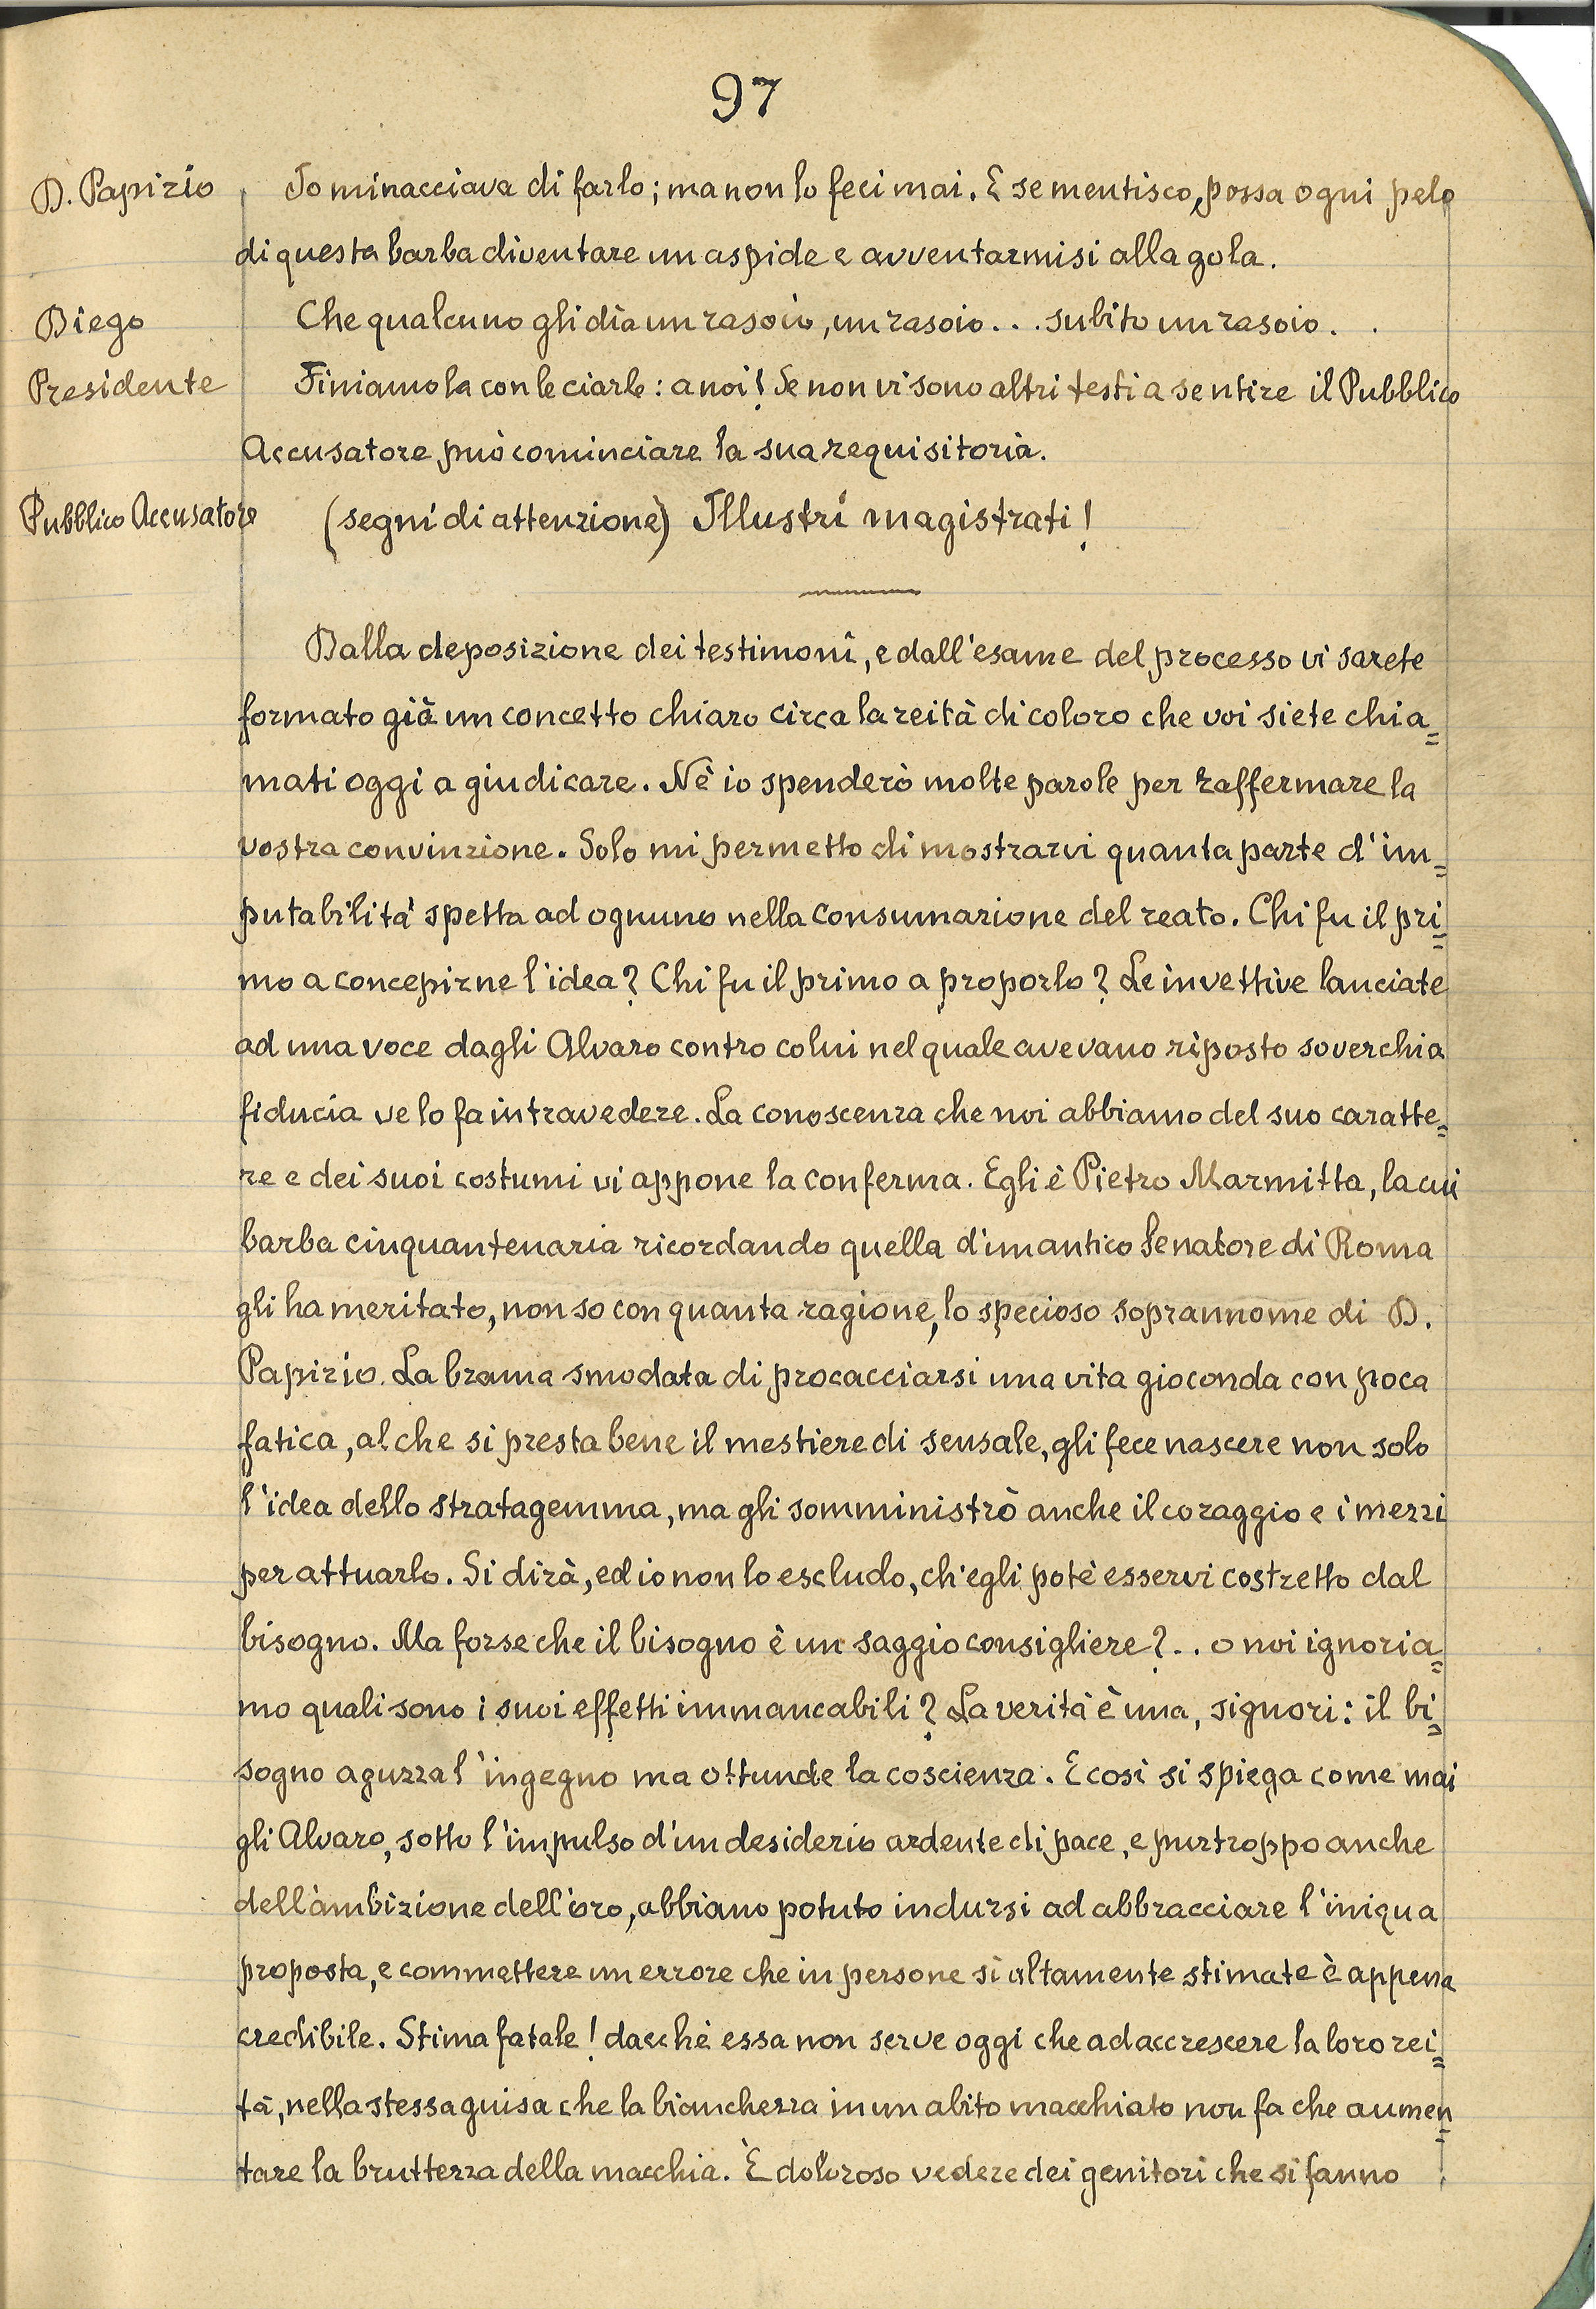 97
D. Papirio Io minacciava di farlo; ma non lo feci mai. E se mentisco, possa ogni pelo
di questa barba diventare un aspide e avventarmisi alla gola.
Diego Che qualcuno gli dia un rasoio, un rasoio... subito un rasoio. .
Presidente Finiamola con le ciarle: a noi! Se non vi sono altri testi a sentire il Pubblico
Accusatore può cominciare la sua requisitoria.
Pubblico Accusatore (segni di attenzione) Illustri magistrati!
Dalla deposizione dei testimoni, e dall'esame del processo vi sarete
formato già un concetto chiaro circa la reità di coloro che voi siete chia=
mati oggi a giudicare. Nè io spenderò molte parole per raffermare la
vostra convinzione. Solo mi permetto di mostrarvi quanta parte d'im=
putabilità spetta ad ognuno nella consumazione del reato. Chi fu il pri=
mo a concepirne l'idea? Chi fu il primo a proporlo? Le invettive lanciate
ad una voce dagli Alvaro contro colui nel quale avevano riposto soverchia
fiducia ve lo fa intravedere. La conoscenza che noi abbiamo del suo caratte=
re e dei suoi costumi vi appone la conferma. Egli è Pietro Marmitta, la cui
barba cinquantenaria ricordando quella d'un antico Senatore di Roma
gli ha meritato, non so con quanta ragione, lo specioso soprannome di D.
Papirio. La brama smodata di procacciarsi una vita gioconda con poca
fatica, al che si presta bene il mestiere di sensale, gli fece nascere non solo
l'idea dello stratagemma, ma gli somministrò anche il coraggio e i mezzi
per attuarlo. Si dirà, ed io non lo escludo, ch'egli potè esservi costretto dal
bisogno. Ma forse che il bisogno è un saggio consigliere?.. o noi ignoria=
mo quali sono i suoi effetti immancabili? La verità è una, signori: il bi=
sogno aguzza l'ingegno ma ottunde la coscienza. E così si spiega come mai
gli Alvaro, sotto l'impulso d'un desiderio ardente di pace, e purtroppo anche
dell'ambizione dell'oro, abbiano potuto indursi ad abbracciare l'iniqua
proposta, e commettere un errore che in persone sì altamente stimate è appena
credibile. Stima fatale! dacchè essa non serve oggi che ad accrescere la loro rei=
tà, nella stessa guisa che la bianchezza in un abito macchiato non fa che aumen=
tare la bruttezza della macchia. È doloroso vedere dei genitori che si fanno